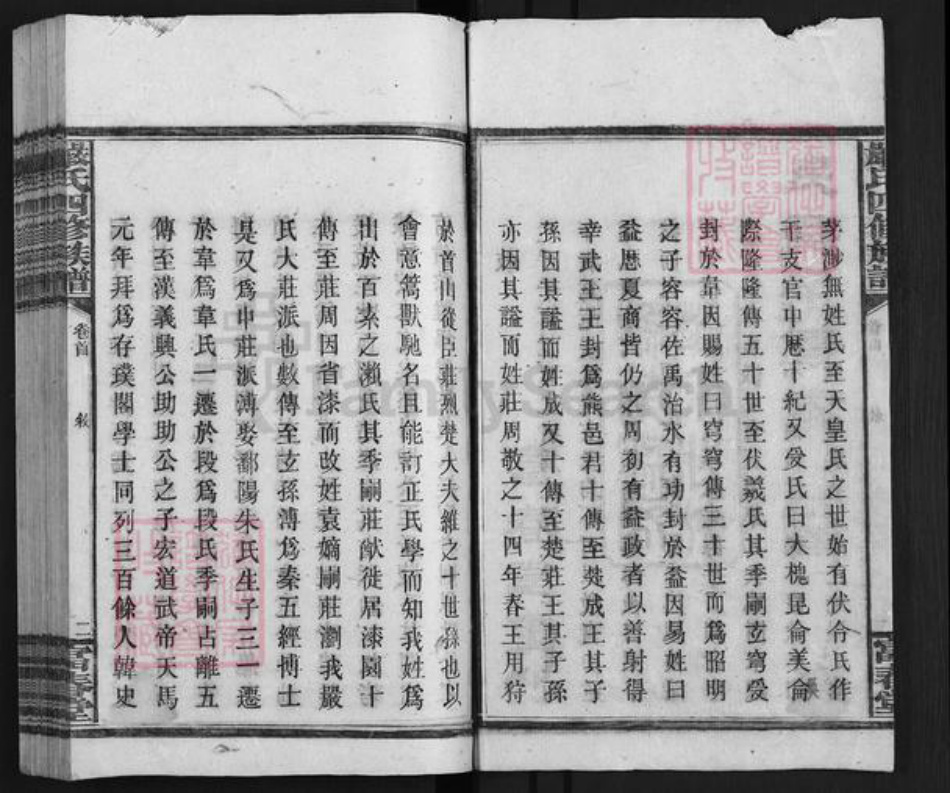 嚴氏四修族譜
茅渺無姓氏至天皇氏之世始有伏令氏作
干支官中歷十紀又爰氏曰大槐昆侖美侖
際隆隆傳五十世至伏羲氏其季嗣玄穹爰
封於韋因賜姓曰穹穹傳三十世而爲昭明
之子容容佐禹治水有功封於益因易姓曰
益歷夏商皆仍之周初有益政者以善射得
幸武王王封爲熊邑君十傳至楚成王其子
孫因其謚而姓成又十傳至楚莊王其子孫
亦因其謚而姓莊周敬之十四年春王用狩
於首山從臣莊烈楚大夫維之十世孫也以
會意篙獸馳名且能訂正氏學而知我姓爲
出於百素之瀨氏其季嗣莊猷徙居漆園十
傳至莊周因省漆而改姓袁嫡嗣莊瀏我嚴
氏大莊派也數傳至玄孫溥爲秦五經博士
是又爲中莊派溥娶鄱陽朱氏生子三一遷
於韋爲韋氏一遷於段爲段氏季嗣占離五
傳至漢義興公助助公之子宏道武帝天馬
元年拜爲存璞閣學士同列三百餘人韓史
嚴氏四修族譜
卷首
敘
二
富春堂